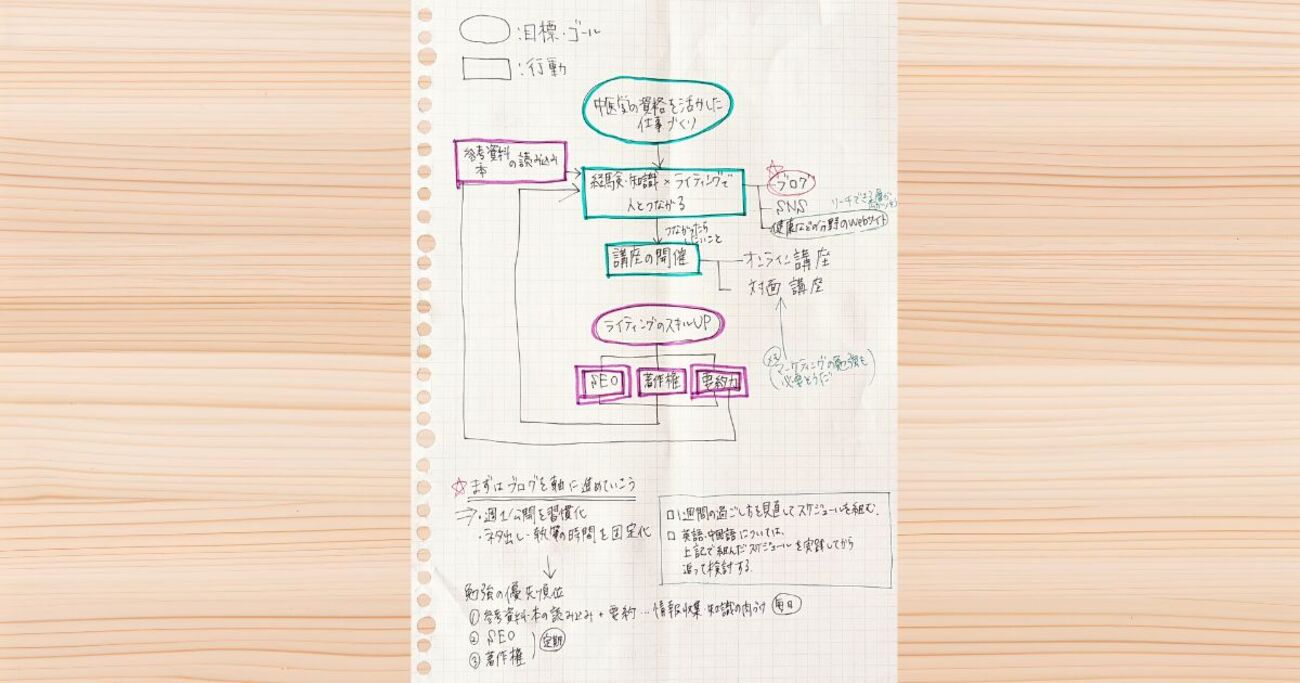 :目標・ゴール
:行動
中医学の資格を活かした
仕事づくり
参考資料
本
の読み込み
経験・知識×ライティングで
人とつながる
ブログ
SNS
リーチできる層が
健康などの分野のWebサイト
つながったら
したいこと
講座の開催
オンライン講座
対面講座
ライティングのスキルUP
SEO
著作権
要約力
マーケティングの勉強も
必要そうだ
まずはブログを軸に進めていこう
・週1公開を習慣化
・ネタ出し・執筆の時間を固定化
□1週間の過ごし方を見直してスケジュールを組む。
□ 英語・中国語については、
上記で組んだスケジュールを実践してから
追って検討する。
勉強の優先順位
①参考資料・本の読み込み+要約…情報収集・知識の肉づけ 毎日
② SEO
③ 著作権
定期